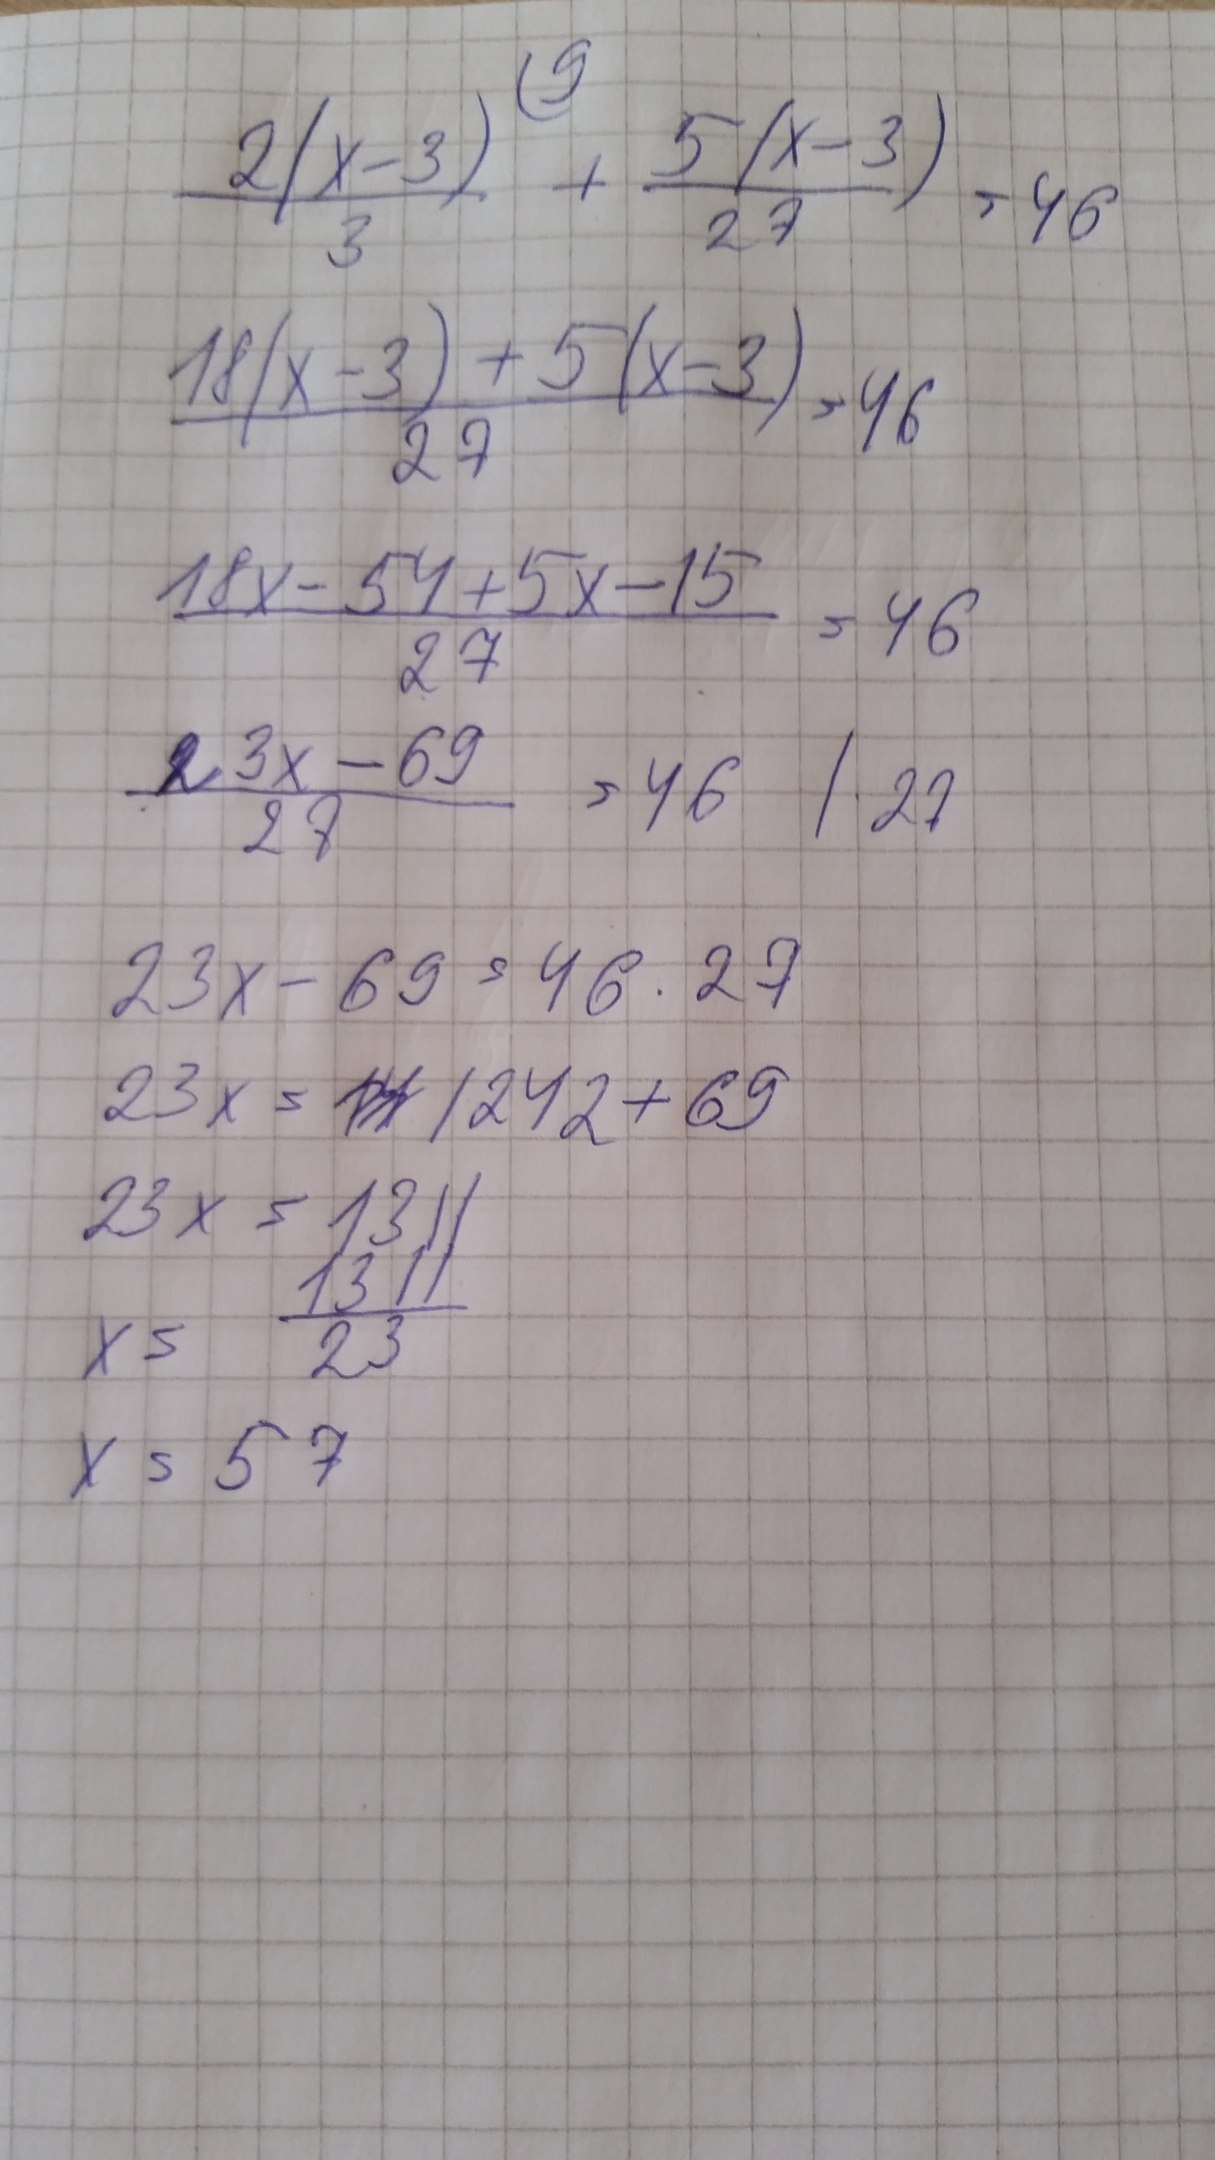 2(x-3)/3 (9 + 5(x-3)/27 = 46
18(x-3)+5(x-3)/27 = 46
18x-54+5x-15/27 = 46
23x-69/27 = 46 |·27
23x-69=46·27
23x=1242+69
23x=1311
x=1311/23
x=57